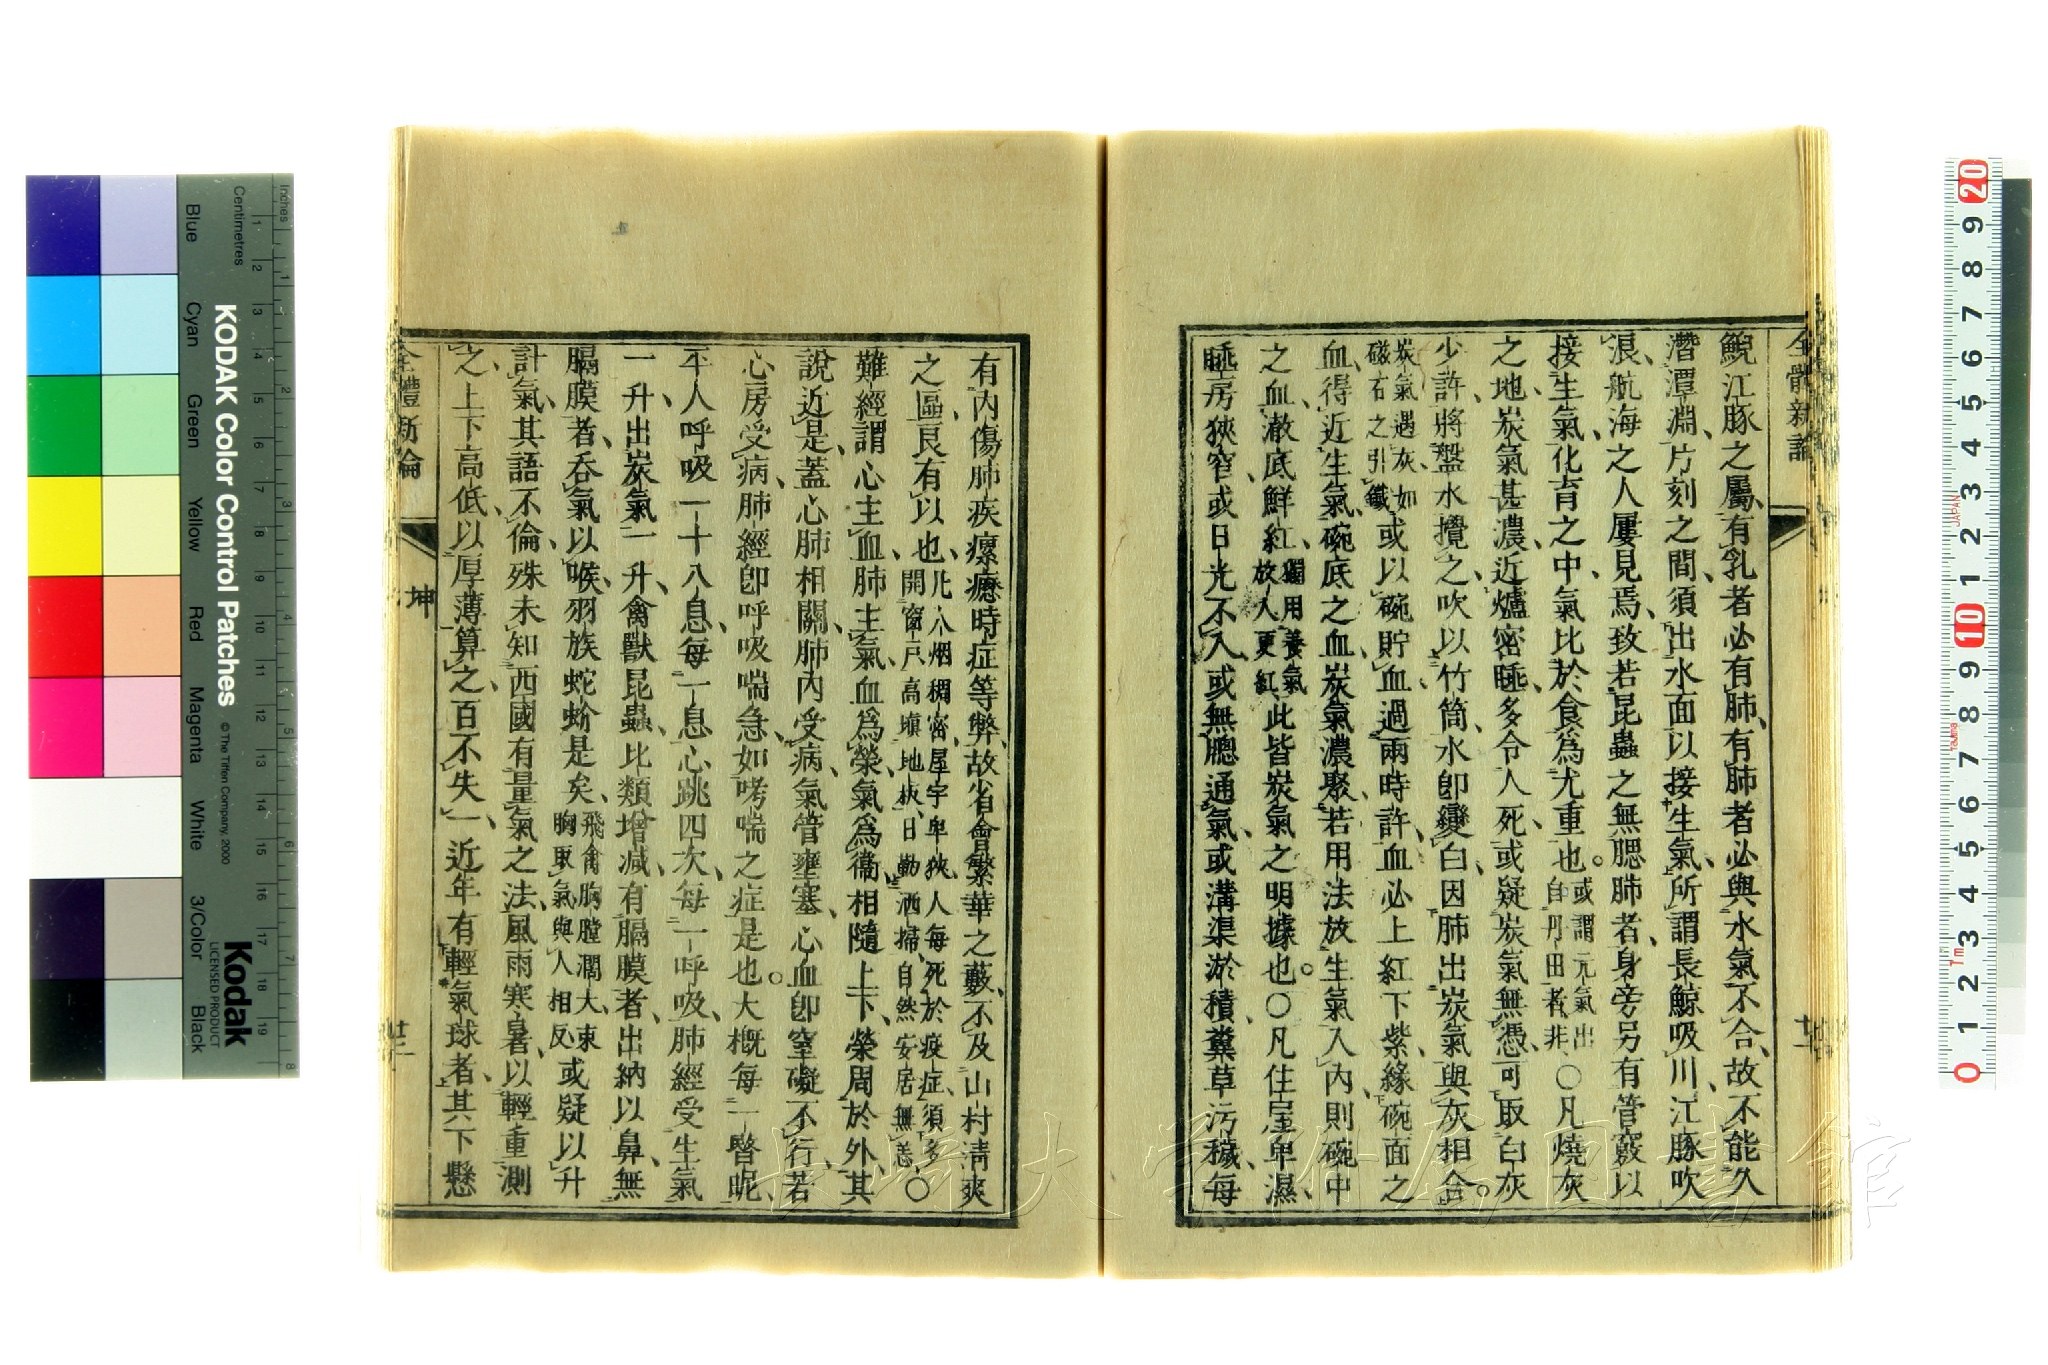 全體新論
鯢江豚之屬有乳者必有肺有肺者必與水氣不合故不能久
潛潭淵片刻之間須出水面以接生氣所謂長鯨吸川江豚吹
浪航海之人屢見焉致若昆蟲之無腮肺者身旁另有管竅以
接生氣化育之中氣比於食為尤重也。或謂元氣出自丹田者非〇凡燒灰
之地炭氣甚濃近爐密睡多令人死或疑炭氣無憑可取白灰
少許將盤水攪之吹以竹筒水卽變白因肺出炭氣與灰相合。
炭氣遇灰如磁石之引鐵或以碗貯血過兩時許血必上紅下紫緣碗面之
血得近生氣碗底之血炭氣濃聚若用法放生氣入內則碗中
之血澈底鮮紅獨用養氣放入更紅此皆炭氣之明據也。〇凡住屋卑濕
睡房狹窄或日光不入或無牕通氣或溝渠淤積糞草污穢每
有內傷肺疾瘰癧時症等弊故省會繁華之藪不及山村清爽
之區良有以也凡人烟稠密屋宇卑狹人每死於疫症須多開窗戶高塡地板日勤洒掃自然安居無恙〇
難經謂心主血肺主氣血為榮氣為衞相隨上下榮周於外其
說近是蓋心肺相關肺內受病氣管壅塞心血卽窒礙不行若
心房受病肺經卽呼吸喘急如哮喘之症是也。大槪每一瞖呢
平人呼吸一十八息每一息心跳四次每一呼吸肺經受生氣
一升出炭氣一升禽獸昆蟲比類增減有膈膜者出納以鼻無
膈膜者吞氣以喉羽族蛇蚧是矣飛禽胸膛濶大束胸取氣與人相反或疑以升
計氣其語不倫殊未知西國有量氣之法風雨寒暑以輕重測
之上下高低以厚薄算之百不失一近年有輕氣球者其下懸
全體新論
坤